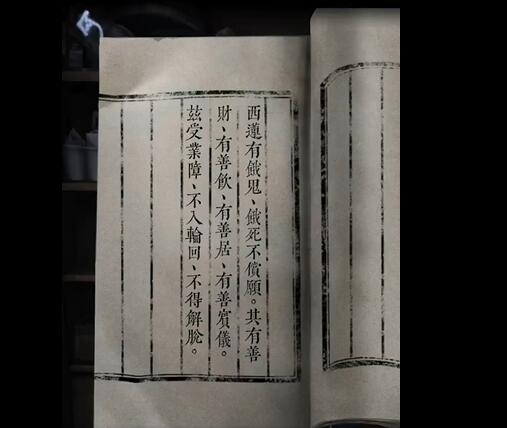 西蓮有餓鬼、餓死不償願。其有善
財、有善飲、有善居、有善賓儀。
玆受業障、不入輪回、不得解脫。